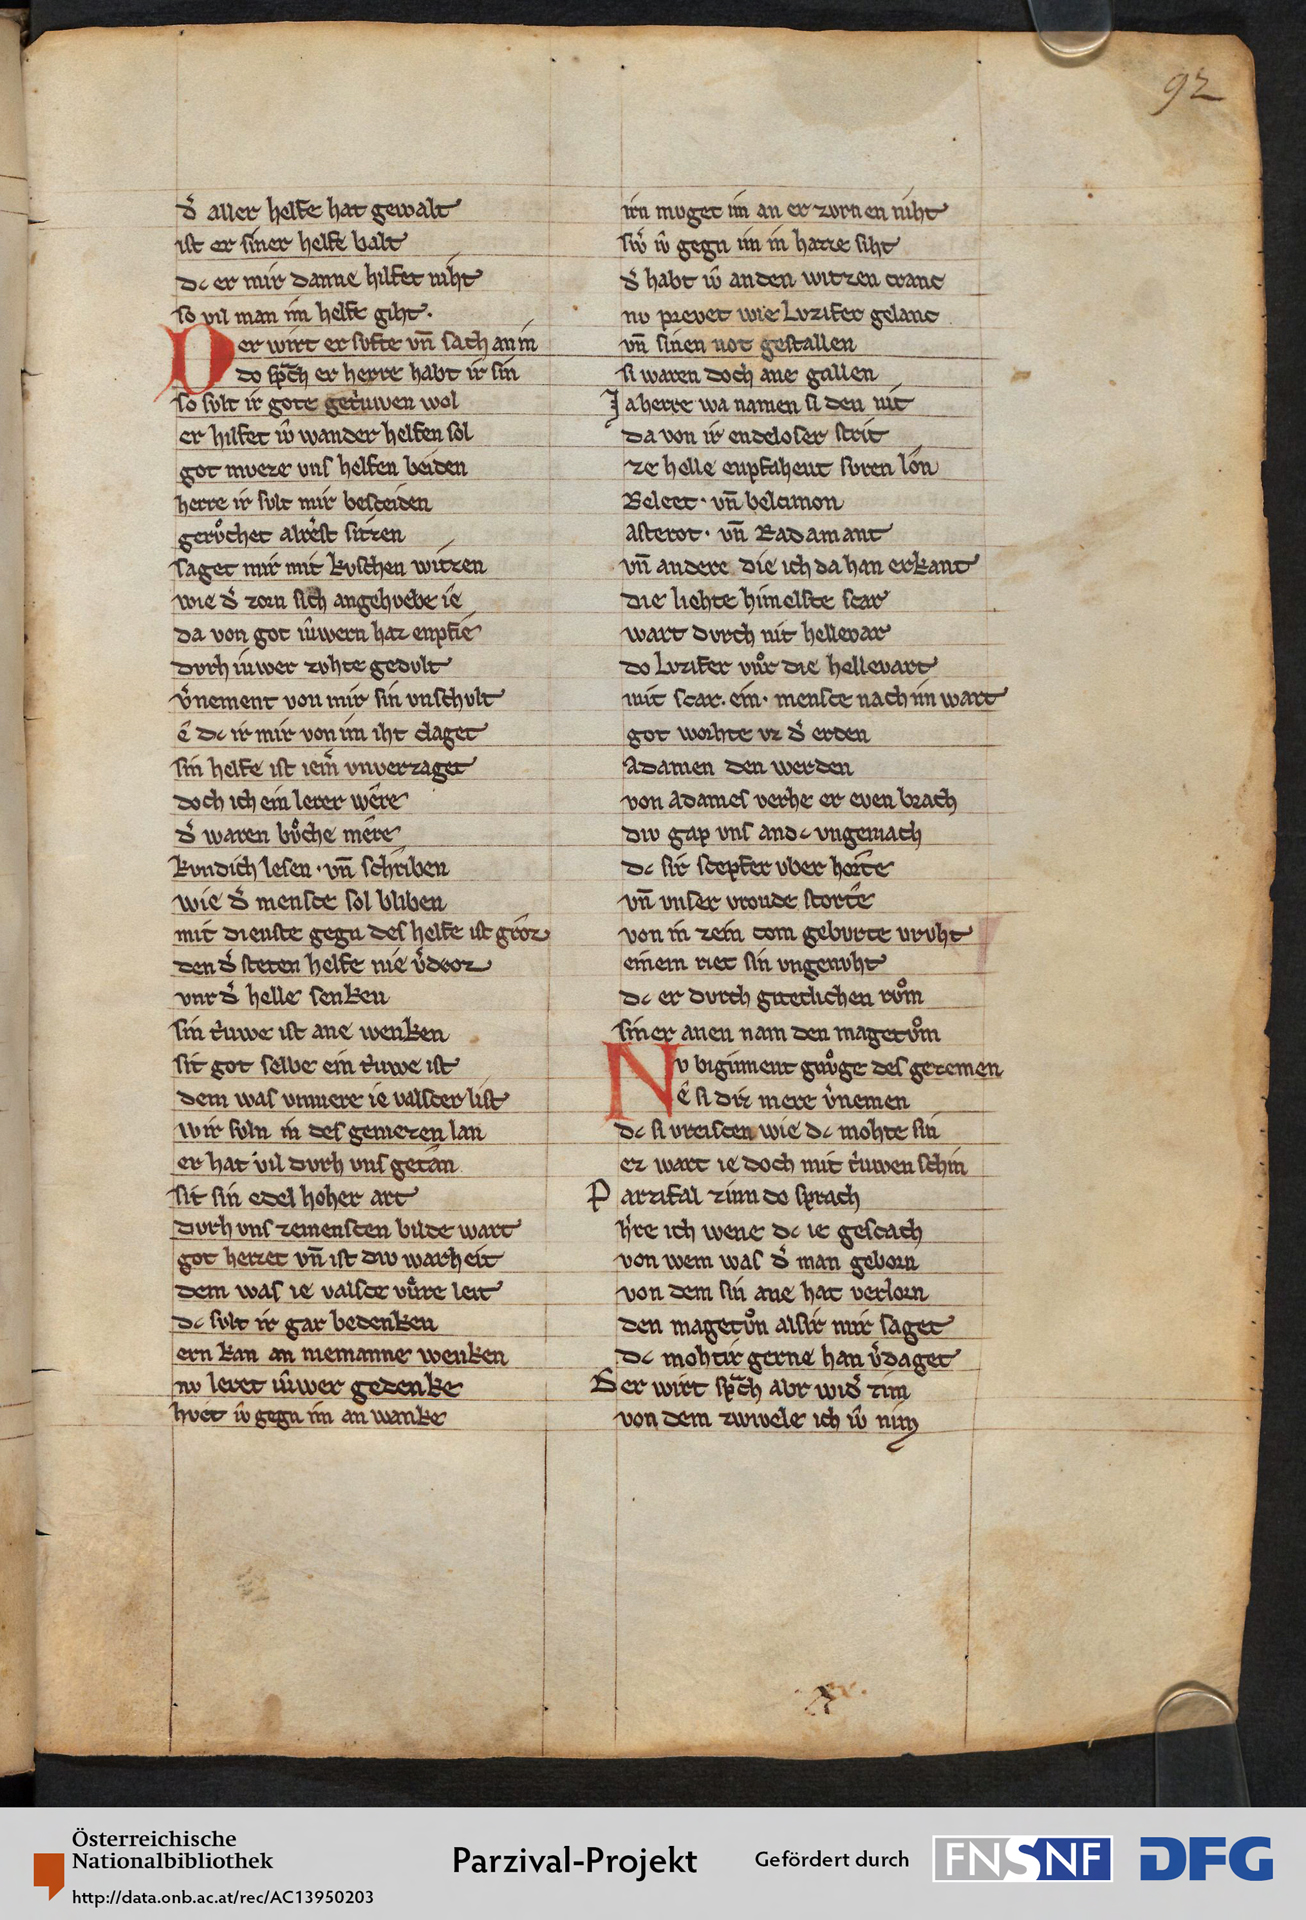 92
d͛ aller helfe hat gewalt
ist er siner helfe balt
dc er mir danne hilfet niht
so vil man im helfe giht.
Der wirt ersufte vn̄ sach an in
do sp͛ch er herre habt ir sin
so sult ir gote getruwen wol
er hilfet iv̂ wander helfen sol
got mveze vns helfen beiden
herre ir svlt mir besceiden
gerůchet alrest sitzen
saget mir mit kvschen witzen
wie d͛ zorn sich angehvebe ie
da von got iv̂wern haz enpfie
dvrh iuwer zvhte gedvlt
v͛nement von mir sin vnschvlt
ê dc ir mir von im iht claget
sin helfe ist iem͛ vnverzaget
doch ich ein leier wêre
d͛ waren bůche mêre
kvndich lesen · vn̄ schriben
wie d͛ mensce sol bliben
mit dienste gegn des helfe ist groz
den d͛ steten helfe nie v͛droz
vur d͛ helle senken
sin triwe ist ane wenken
sit got selbe ein triwe ist
dem was vnmere ie valscer list
wir svln in des geniezen lan
er hat vil dvrh vns getan
sit sin edel hoher art
dvrh vns zemenscen bilde wart
got heizet vn̄ ist div warheit
dem was ie valsce vůre leit
dc svlt ir gar bedenken
ern kan an niemanne wenken
nv leret iv̂wer gedenke
hvet iv̂ gegn im an wanke
irn mvget im an erzvrnen niht
swͤ iv̂ gegn im in hazze siht
d͛ habt iv̂ anden witzen cranc
nv prevet wie Lvzifer gelanc
vn̄ sinen not gestallen
si waren doch ane gallen
Ja herre wa namen si den nit
da von ir endeloser strit
ze helle enpfahent svren lôn
Beleet · vn̄ belcimon
asterot · vn̄ Radamant
vn̄ andere die ich da han erkant
die liehte himelsce scar
wart dvrch nit hellevar
do Lvzifer vůr die hellevart
mit scar. ein · mensce nach im wart
got worhte vz d͛ erden
Adamen den werden
von Adames verhe er even brach
div gap vns an dc vngemach
dc sir scepfer vber hôrte
vn̄ vnser vrovde storte
von in zein com gebvrte vrvht
einem riet sin vngenvht
dc er dvrch gitetlichen rům
siner anen nam den magetům
Nv biginnent gnůge des gezemen
ê si diz mere v͛nemen
dc si vreiscen wie dc mohte sin
ez wart ie doch mit triwen schin
Parzifal zim do sprach
h͛re ich wene dc ie gescach
von wem was d͛ man geborn
von dem sin ane hat verlorn
den magetůn alsir mir saget
dc mohtir gerne han v͛daget
Der wirt sp͛ch abr wid͛ zim
von dem zwivele ich iv̂ nim
Österreichische
Nationalbibliothek
http://data.onb.ac.at/rec/AC13950203
Parzival-Projekt
Gefördert durch
FNSNF
DFG